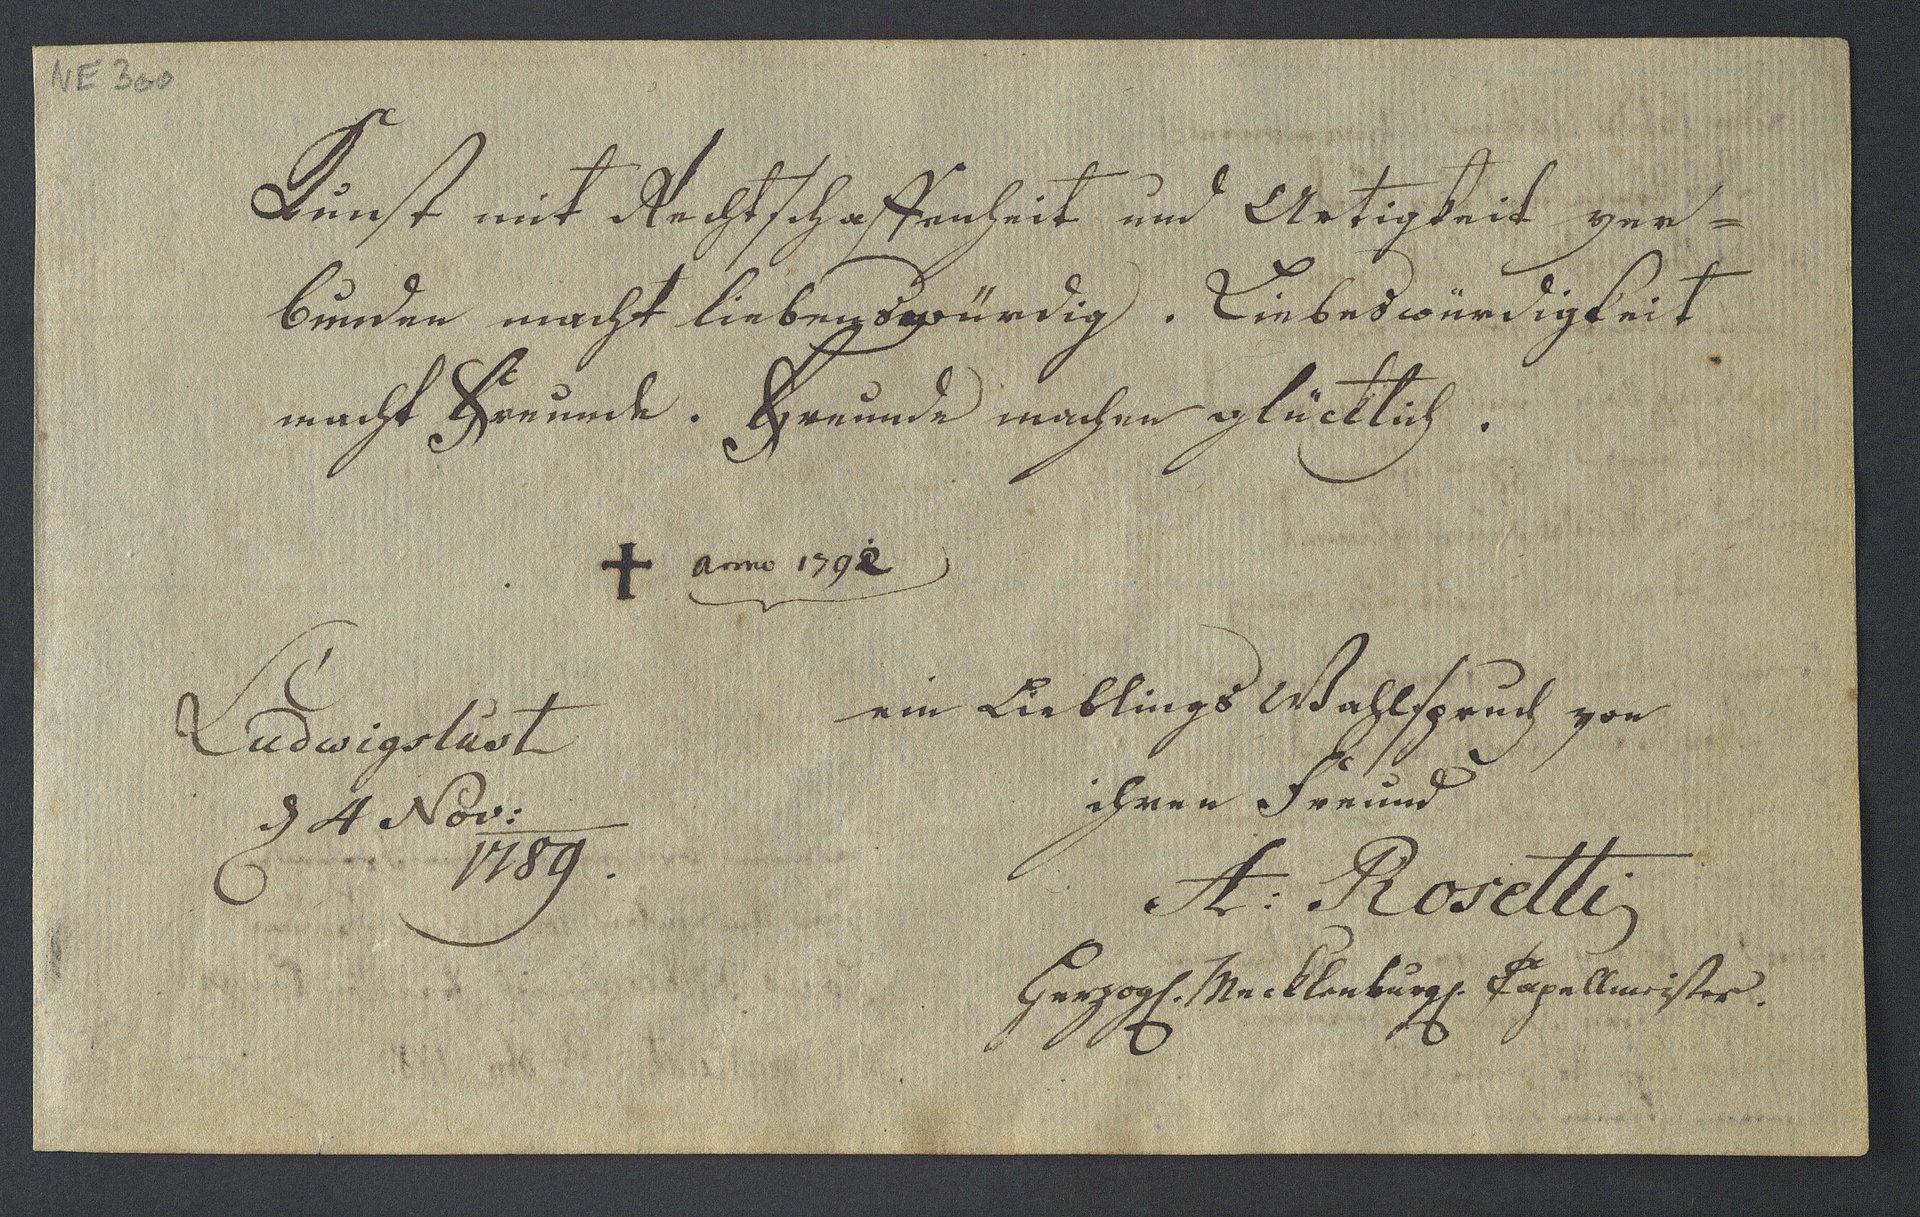 NE 300
Kunst mit Rechtschaffenheit und Artigkeit ver=
bunden macht liebenswürdig. Liebeswürdigkeit
macht Freunde. Freunde machen glücklich.
✝ anno 1792
ein Lieblings Wahlspruch von
ihren Freund
A: Rosetti
Herzogl. Mecklenburgl. Capellmeister.
Ludwigslust
d 4 Nov:
1789.